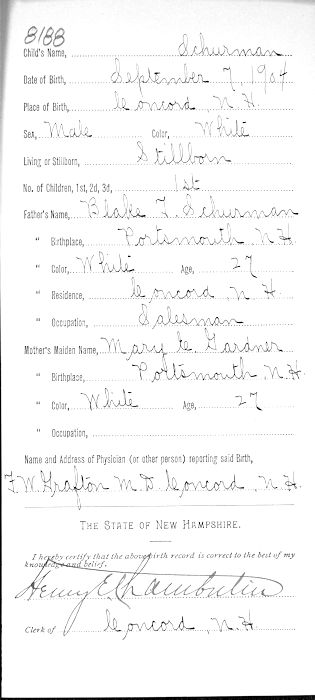 8188
Child's Name, Schurman
Date of Birth, September 7, 1904
Place of Birth, Concord, N.H.
Sex, Male Color, White
Living or Stillborn, Stillborn
No. of Children, 1st, 2d, 3d, 1st
Father's Name, Blake T. Schurman
" Birthplace, Portsmouth, N.H.
" Color, White Age, 27
" Residence, Concord, N.H.
" Occupation, Salesman
Mother's Maiden Name, Mary C. Gardner
" Birthplace, Portsmouth, N.H.
" Color, White Age, 27
" Occupation,
Name and Address of Physician (or other person) reporting said Birth,
F.W. Grafton M.D. Concord, N.H.
THE STATE OF NEW HAMPSHIRE.
I hereby certify that the above birth record is correct to the best of my
knowledge and belief.
Henry E. Chamberlin
Clerk of Concord, N.H.